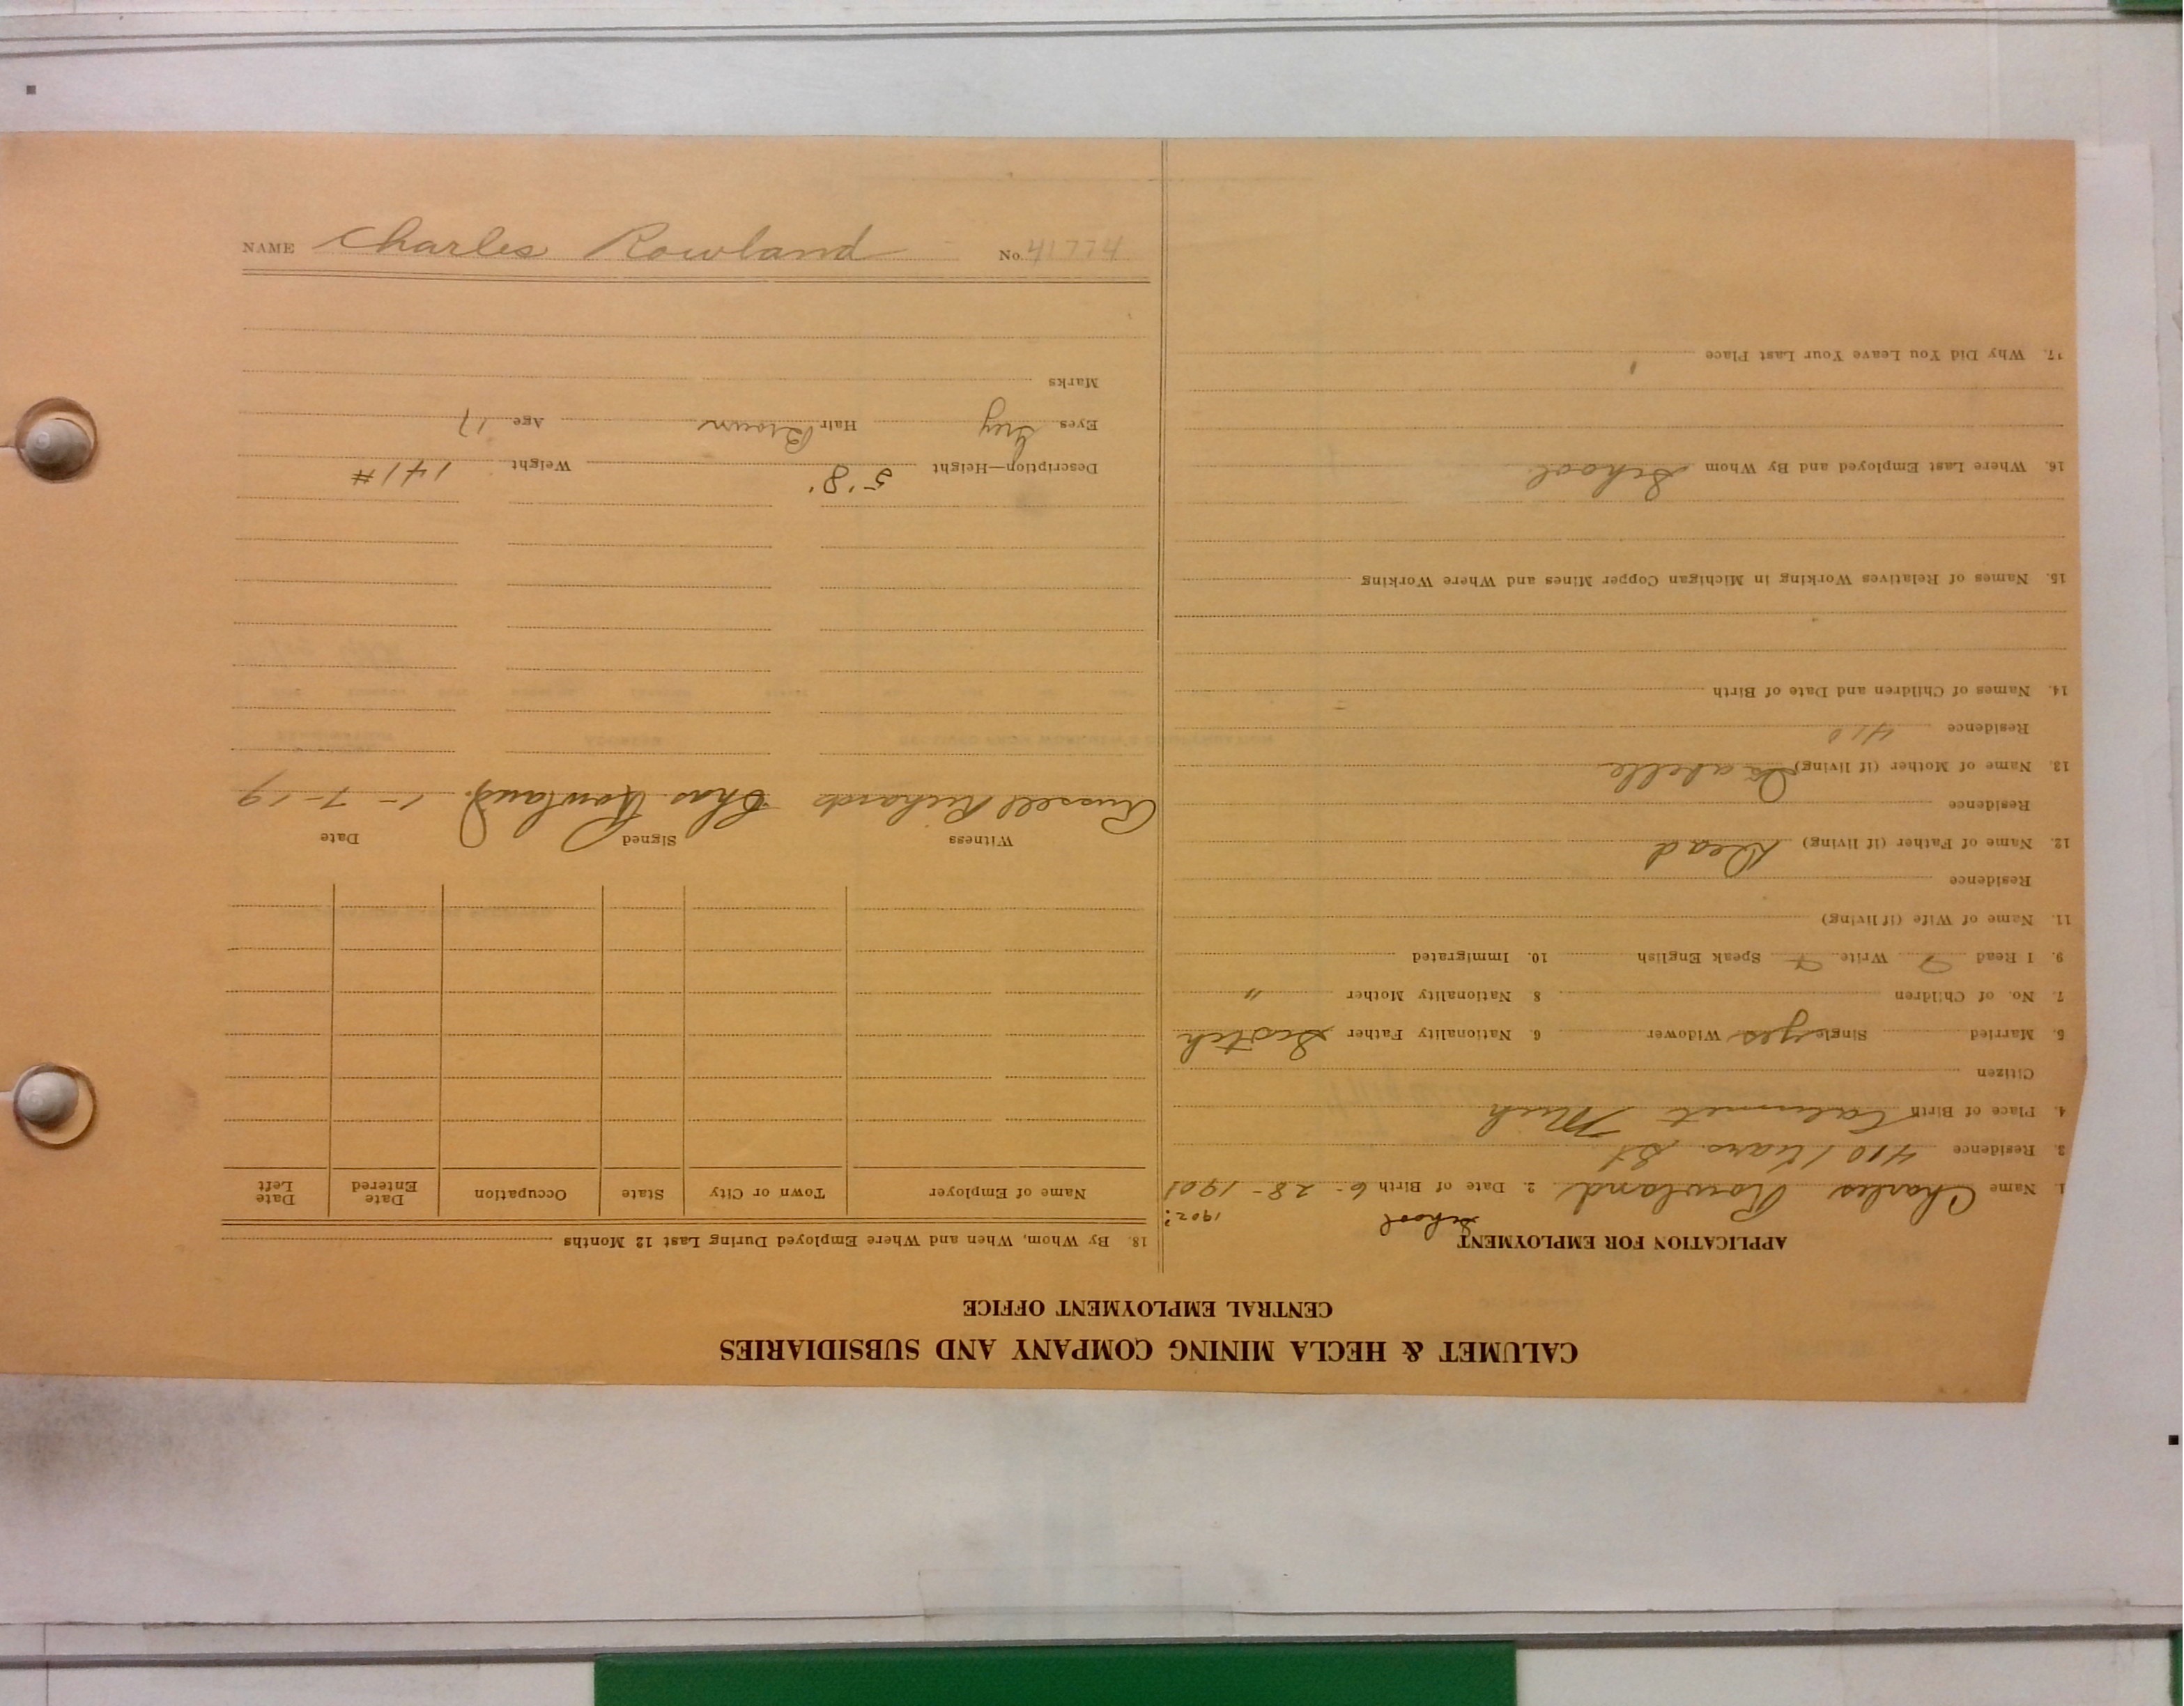 CALUMET & HECLA MINING COMPANY AND SUBSIDIARIES
CENTRAL EMPLOYMENT OFFICE
APPLICATION FOR EMPLOYMENT
School 1902?
1. Name Charles Rowland 2. Date of Birth 6-28-1901
3. Residence 410 Kears St
4. Place of Birth Calumet Mich
Citizen
5. Married Single yes Widower 6. Nationality Father Scotch
7. No. of Children 8 Nationality Mother "
9. I Read Write Speak English 10. Immigrated
11. Name of Wife (if living)
Residence
12. Name of Father (if living) Dead
Residence
13. Name of Mother (if living) Isabelle
Residence 410
14. Names of Children and Date of Birth
15. Names of Relatives Working in Michigan Copper Mines and Where Working
16. Where Last Employed and By Whom School
17. Why Did You Leave Your Last Place
18. By Whom, When and Where Employed During Last 12 Months
Name of Employer Town or City State Occupation Date Entered Date Left
Witness Signed Date
Russell Richards Chas Rowland. 1-7-19
Description—Height 5'8' Weight 141#
Eyes Grey Hair Brown Age 17
Marks
NAME Charles Rowland No. 41774